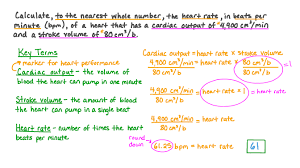 Calculate, to the nearest whole number, the heart rate, in beats per minute (bpm), of a heart that has a cardiac output of 4,900 cm³/min and a stroke volume of 80 cm³/b.
Key Terms
marker for heart performance
Cardiac output - the volume of blood the heart can pump in one minute
Stroke volume - the amount of blood the heart can pump in a single beat
Heart rate - number of times the heart beats per minute
Cardiac output = heart rate × stroke volume
4,900 cm³/min = heart rate × 80 cm³/b
80 cm³/b 80 cm³/b
= 1
4,900 cm³/min = heart rate × 1 = heart rate
80 cm³/b
4,900 cm³/min = heart rate
80 cm³/b
round down
61.25 bpm = heart rate 61